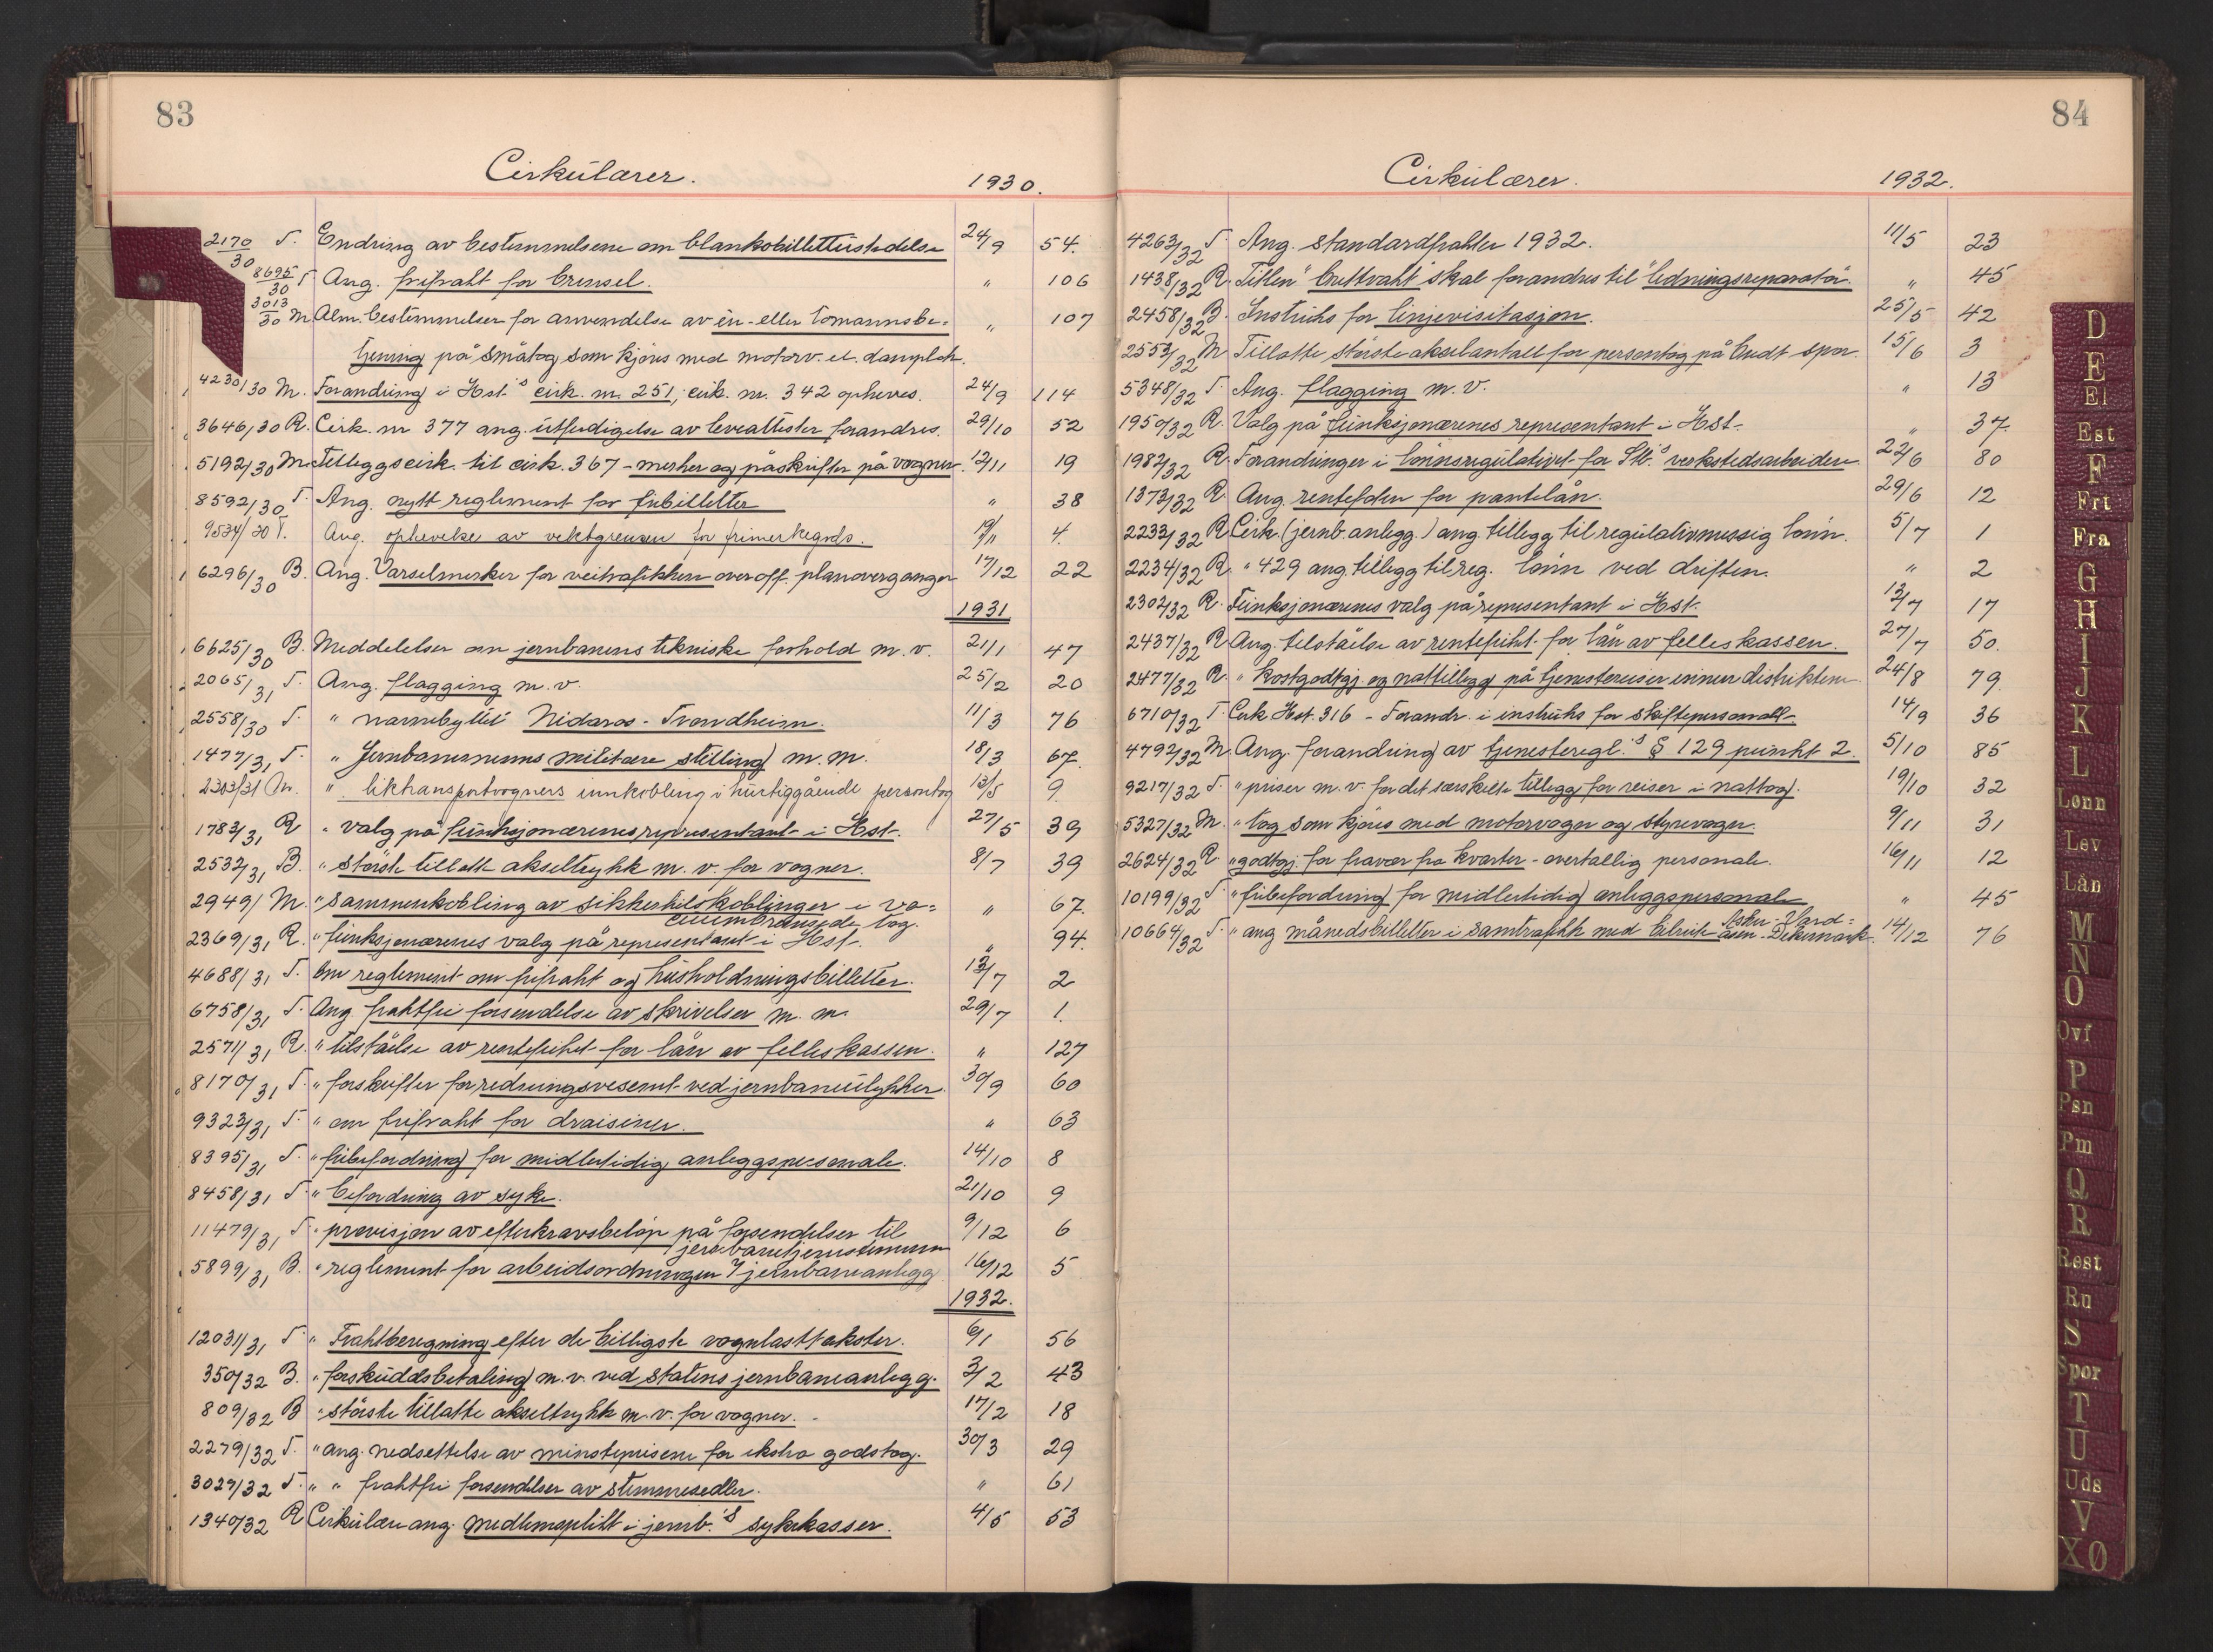 83
Cirkulærer.
1930.
2170/30 T. Endring av bestemmelsene om blankobillettutstedelse 24/9 54.
8695/30 T Ang. frifrakt for brensel. " 106
3013/30 M. Alm. bestemmelser for anvendelse av én- eller tomannsbe= " 107
tjening på småtog som kjøres med motorv. el. damplok.
4230/30 M. Forandring i Hst.'s cirk. nr. 251, cirk. nr. 342 opheves. 24/9 114
3646/30 R. Cirk. nr 377 ang. utferdigelse av leveattester forandres. 29/10 52
5192/30 M. Tilleggscirk. til cirk. 367 - merker og påskrifter på vogner. 12/11 19
8592/30 T. Ang. nytt reglement for fribilletter " 38
9534/30 T. Ang. ophevelse av vektgrensen for frimerkegods. 19/11 4.
6296/30 B. Ang. Varselmerker for veitrafikken over off. planoverganger 17/12 22
1931
6625/30 B. Meddelelser om jernbanens tekniske forhold m.v. 21/1 47
2065/31 T. Ang. flagging m.v. 25/2 20
2558/30 T. " navnebyttet Nidaros - Trondheim. 11/3 76
1477/31 T. " Jernbanemenns militære stilling m.m. 18/3 67.
2303/31 M. " liktransportvogners innkobling i hurtiggående persontog 13/5 9.
1783/31 R " valg på funksjonærenes representant i Hst. 27/5 39
2532/31 B. " største tillatte akseltrykk m.v. for vogner. 8/7 39
2949/ M. " sammenkobling av sikkerhetskoblinger i va= " 67.
cuumbremsede tog.
2369/31 R. " funksjonærenes valg på representant i Hst. " 94.
4688/31 T. Om reglement om frifrakt og husholdningsbilletter. 13/7 2
6758/31 T. Ang. fraktfri forsendelse av skrivelser m.m. 29/7 1.
2571/31 R. " tilståelse av rentefrihet for lån av felleskassen. " 127
8170/31 T. " forskrifter for redningsvesenet ved jernbaneulykker. 30/9 60
9323/31 T. " om frifrakt for draisiner. " 63
8395/31 T. " fribefordring for midlertidig anleggspersonale. 14/10 8
8458/31 T. " befordring av syke. 21/10 9
11479/31 T. " provisjon av efterkravsbeløp på forsendelser til 9/12 6
jernbanetjenestemenn
5899/31 B. " reglement for arbeidsordningen v/ jernbaneanlegg 16/12 5
1932.
12031/31 T. " Fraktberegning efter de billigste vognlasttakster. 6/1 56
350/32 B. " forskuddsbetaling m.v. ved statens jernbaneanlegg. 3/2 43
809/32 B " største tillatte akseltrykk m.v. for vogner. 17/2 18
2279/32 T. " ang. nedsettelse av minsteprisene for ekstra godstog. 30/3 29
3027/32 T. " " fraktfri forsendelser av stemmesedler. " 61
1340/32 R Cirkulære ang. medlemsplikt i jernb.'s sykekasser. 4/5 53
84
Cirkulærer.
1932.
4263/32 T. Ang. standardfrakter 1932. 11/5 23
1438/32 R. Titlen "brettvakt" skal forandres til "ledningsreparatør". " 45
2458/32 B. Instruks for linjevisitasjon. 25/5 42
2553/32 M Tillatte største akselantall for persontog på bredt spor. 15/6 3
5348/32 T. Ang. flagging m.v. " 13
1950/32 R. Valg på funksjonærenes representant i Hst. " 37.
1982/32 R. Forandringer i lønnsregulativet for Stb.'s verkstedsarbeidere 22/6 80
1373/32 R. Ang. rentefoten for pantelån. 29/6 12
2233/32 R Cirk. (jernb.anlegg.) ang. tillegg til regulativmessig lønn. 5/7 1
2234/32 R. " 429 ang. tillegg til reg. lønn ved driften. " 2
2302/32 R. Funksjonærenes valg på representant i Hst. 13/7 17
2437/32 R Ang. tilståelse av rentefrihet for lån av felleskassen. 27/7 50.
2477/32 R. " kostgodtgj. og nattillegg på tjenestereiser innen distriktene 24/8 79.
6710/32 T Cirk Hst. 316 - Forandr. i instruks for skiftepersonalet 14/9 36
4792/32 M Ang. forandring av tjenesteregl.'s § 129 punkt 2. 5/10 85
9217/32 T. " priser m.v. for det særskilte tillegg for reiser i nattog. 19/10 32
5327/32 M. " tog som kjøres med motorvogn og styrevogn. 9/11 31
2624/32 R " godtgj. for fravær fra kvarter - overtallig personale. 16/11 12
10199/32 T. " fribefordring for midlertidig anleggspersonale " 45
10664/32 T. " ang månedsbilletter i samtrafikk med bilrute Asker - Vard=åsen - Dikemark. 14/12 76
D
E
El
Est
F
Frt
Fra
G
H
I
J
K
L
Lønn
Lev
Lån
M
N
O
Ovf
P
Psn
Pm
Q
R
Rest
Rn
S
Spor
T
U
Uds
V
XØ